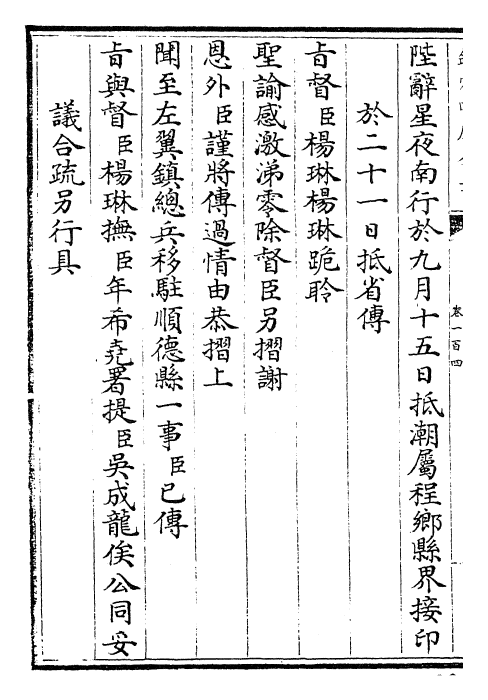 卷一百四
陛辭星夜南行於九月十五日抵潮屬程鄉縣界接印
於二十一日抵省傳
旨督臣楊琳楊琳跪聆
聖諭感激涕零除督臣另摺謝
恩外臣謹將傳過情由恭摺上
聞至左翼鎮總兵移駐順德縣一事臣已傳
旨與督臣楊琳撫臣年希堯署提臣吳成龍俟公同妥
議合疏另行具